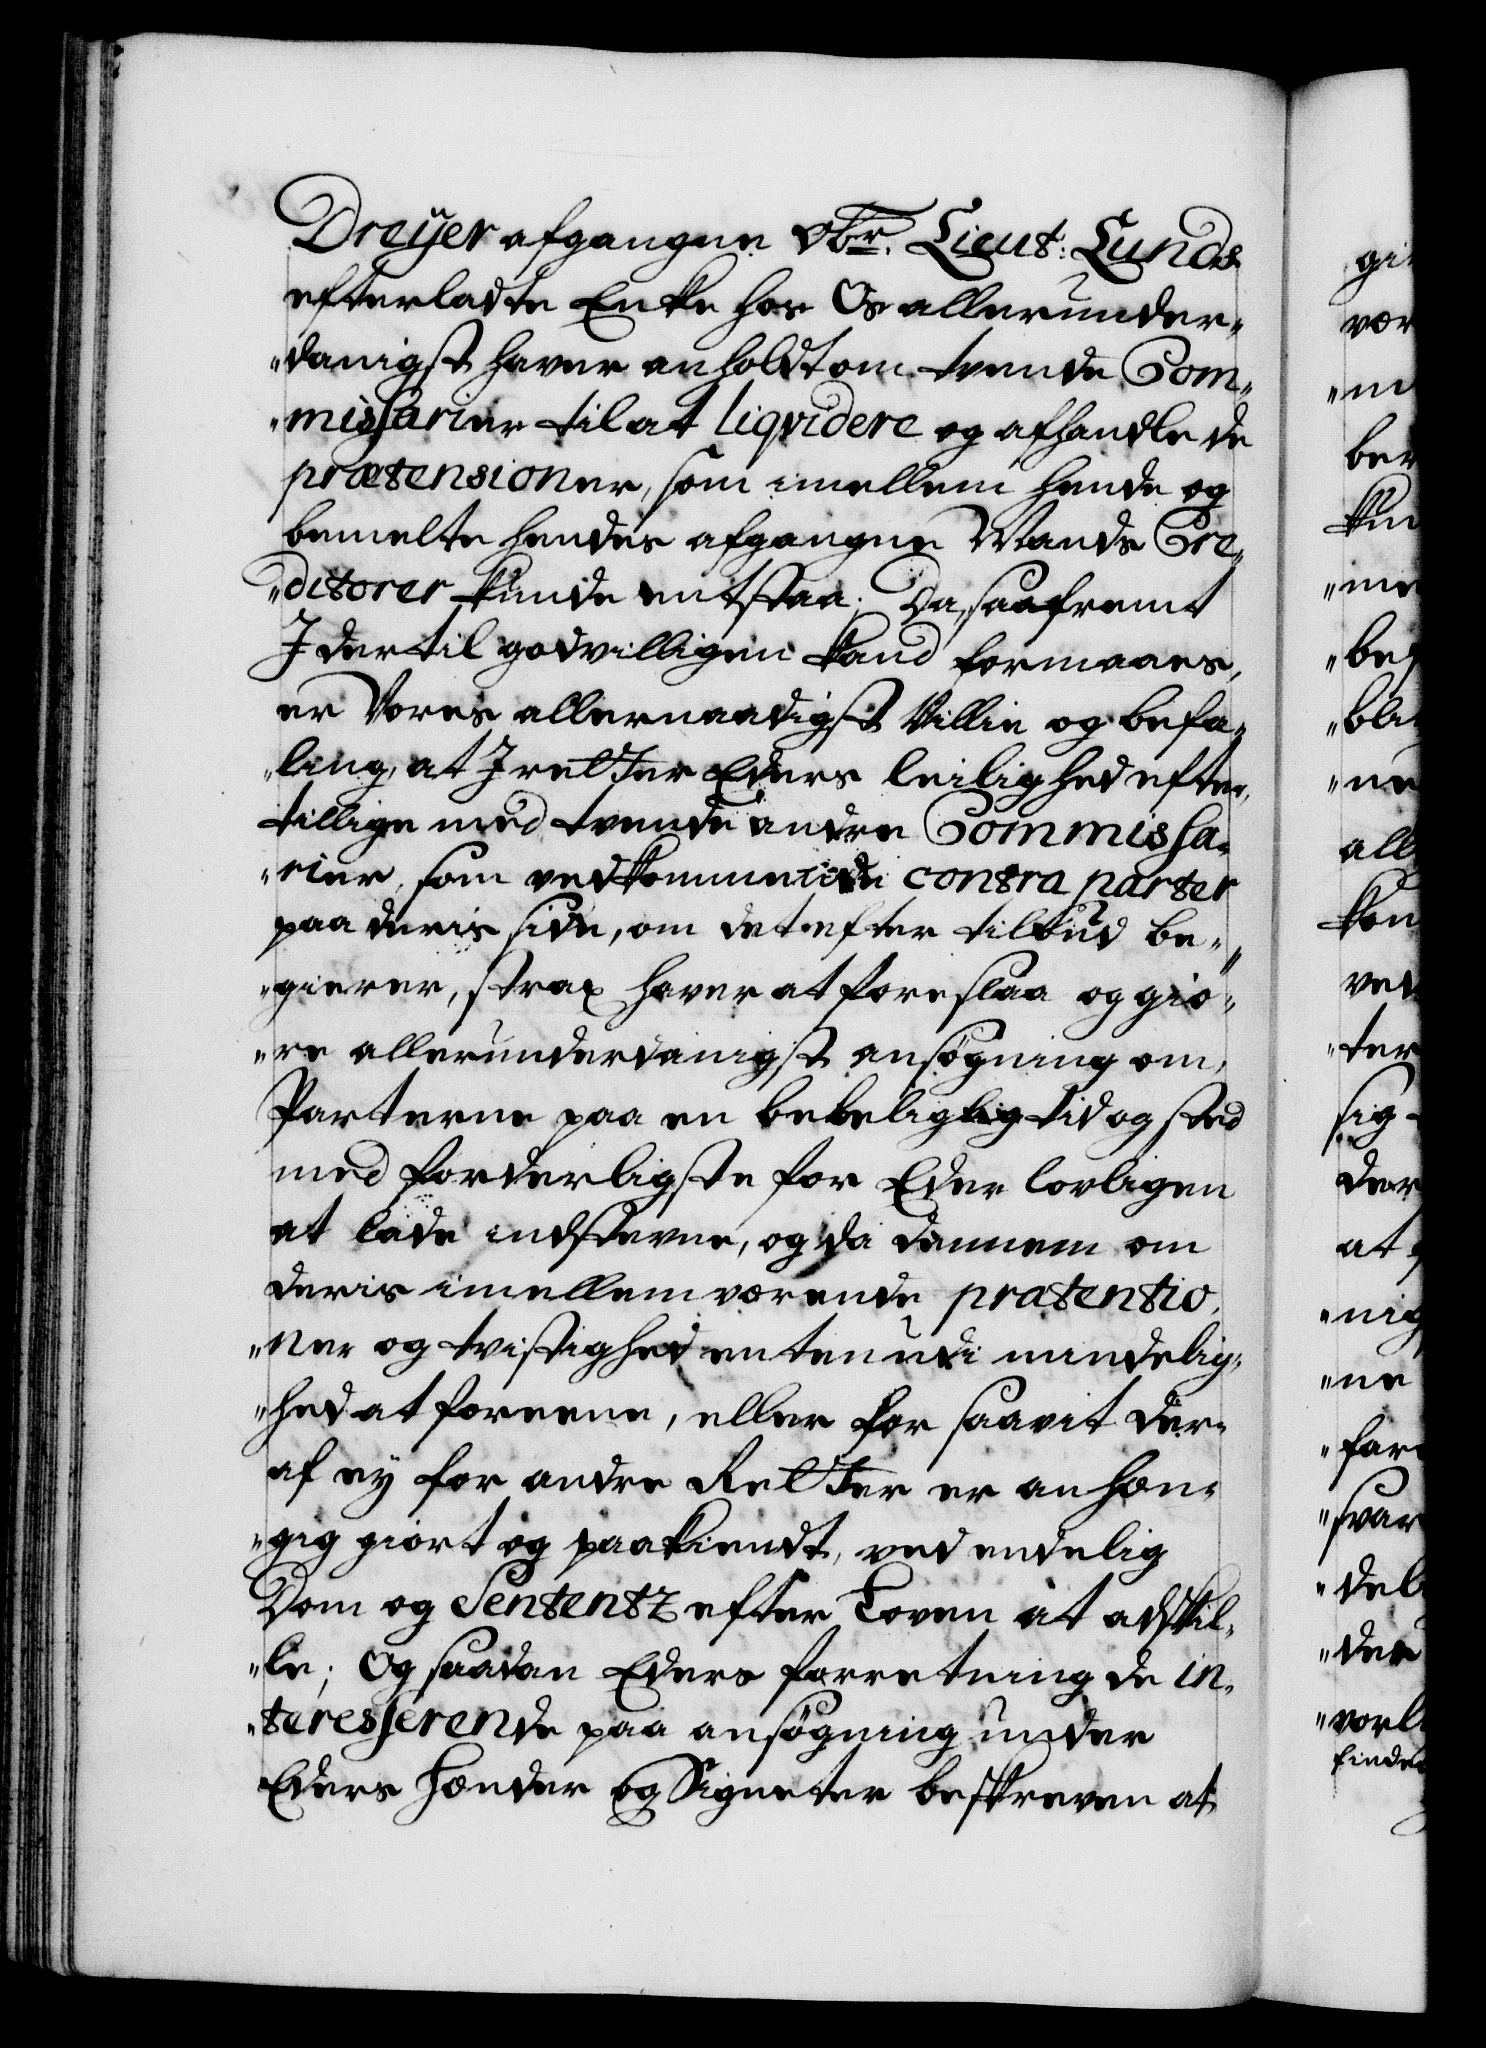 Dreÿer afgangne Obr. Lieut: Lunds
efterladte Encke hos Os allerunder-
-danigst haver anholdt om tvende Com-
-missarier til at liqvidere og afhandle de
prætensioner, som imellem hende og
bemelte hendes afgangne Mands Cre-
-ditorer kunde entstaa; Da, saafremt
I dertil godvilligen kand formaaes,
er Vores allernaadigst Villie og befa-
-ling, at I retter Eders leilighed efter,
tillige med tvende andre Commissa-
-rier, som vedkommende contra parter
paa deris side, om det efter tilbud be-
-gierer, strax haver at foreslaa og giø-
-re allerunderdanigst ansøgning om,
Parterne paa en beleiglig tid og sted
med forderligste for Eder lovligen
at lade indstevne, og da dennem om
deris imellem værende prætentio-
-ner og tvistighed enten udi mindelig-
-hed at foreene, eller for saavit der-
af ey for andre Retter er anhæn-
-gig giort og paakiendt, ved endelig
Dom og Sententz efter Loven at adskil-
-le; Og saadan Eders forretning de in-
-teresserende paa ansøgning under
Eders hænder og Signeter beskreven at
gi
vær
-m
ber
kun
-me
-be
-bli
-ne
all
kon
ved
-ter
sig
der
at
-nig
-ne
-far
-svar
-del
-der
-vorl